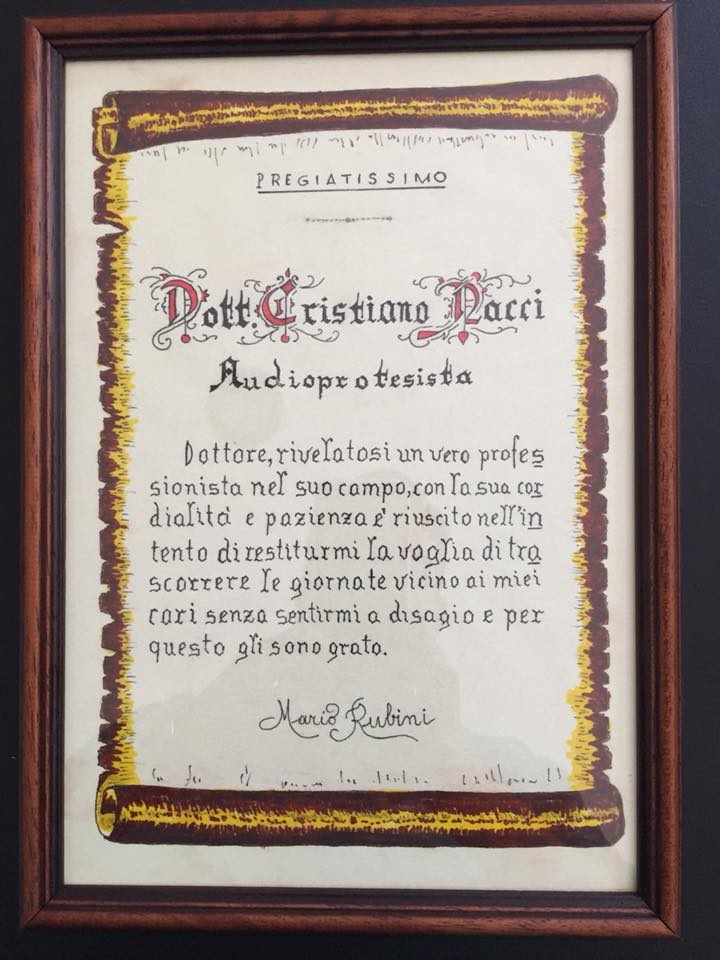 PREGIATISSIMO
Dott. Cristiano Nacci
Audioprotesista
Dottore, rivelatosi un vero profes
sionista nel suo campo, con la sua cor
dialità e pazienza è riuscito nell'in
tento di restiturmi la voglia di tra
scorrere le giornate vicino ai miei
cari senza sentirmi a disagio e per
questo gli sono grato.
Mario Rubini